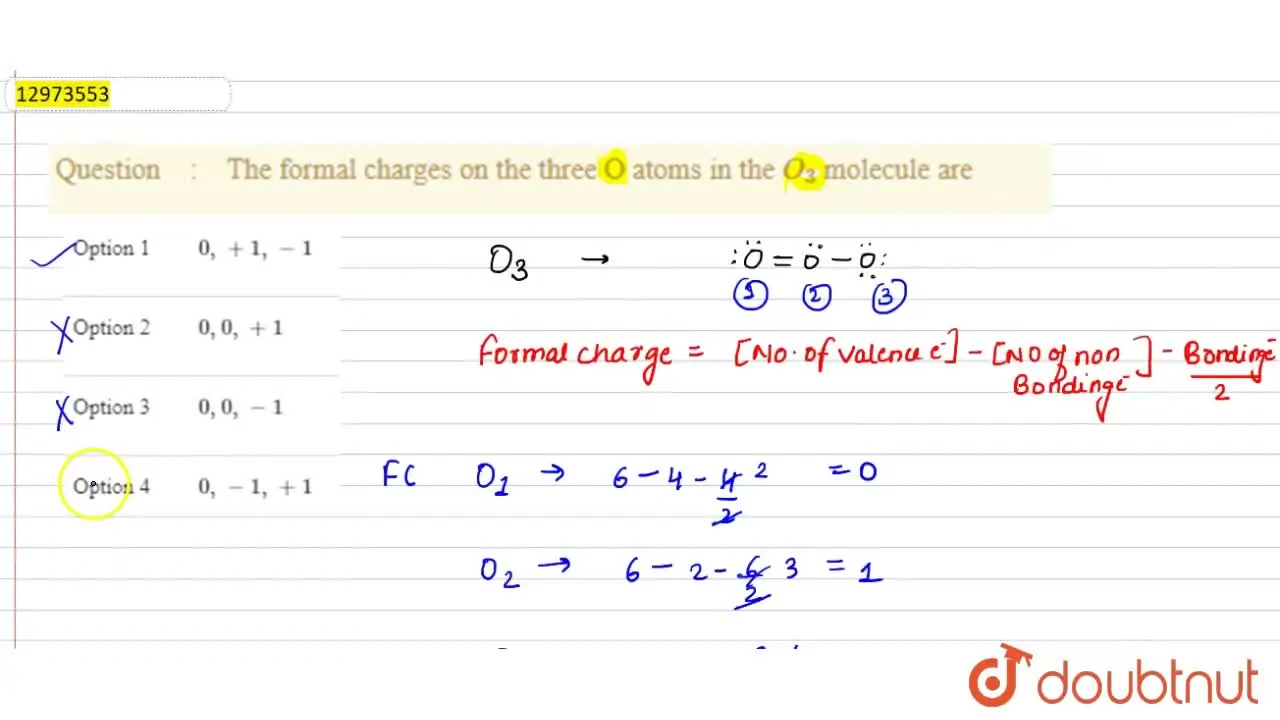 12973553
Question : The formal charges on the three O atoms in the O₃ molecule are
Option 1 0, +1, −1
O₃ → :Ö = Ö − Ö:
① ② ③
Option 2 0, 0, +1
Formal charge = [No. of valence e⁻] − [NO of non Bonding e⁻] − Bonding e⁻ / 2
Option 3 0, 0, −1
Option 4 0, −1, +1
FC O₁ → 6 − 4 − 4/2 2 = 0
O₂ → 6 − 2 − 6/2 3 = 1
doubtnut